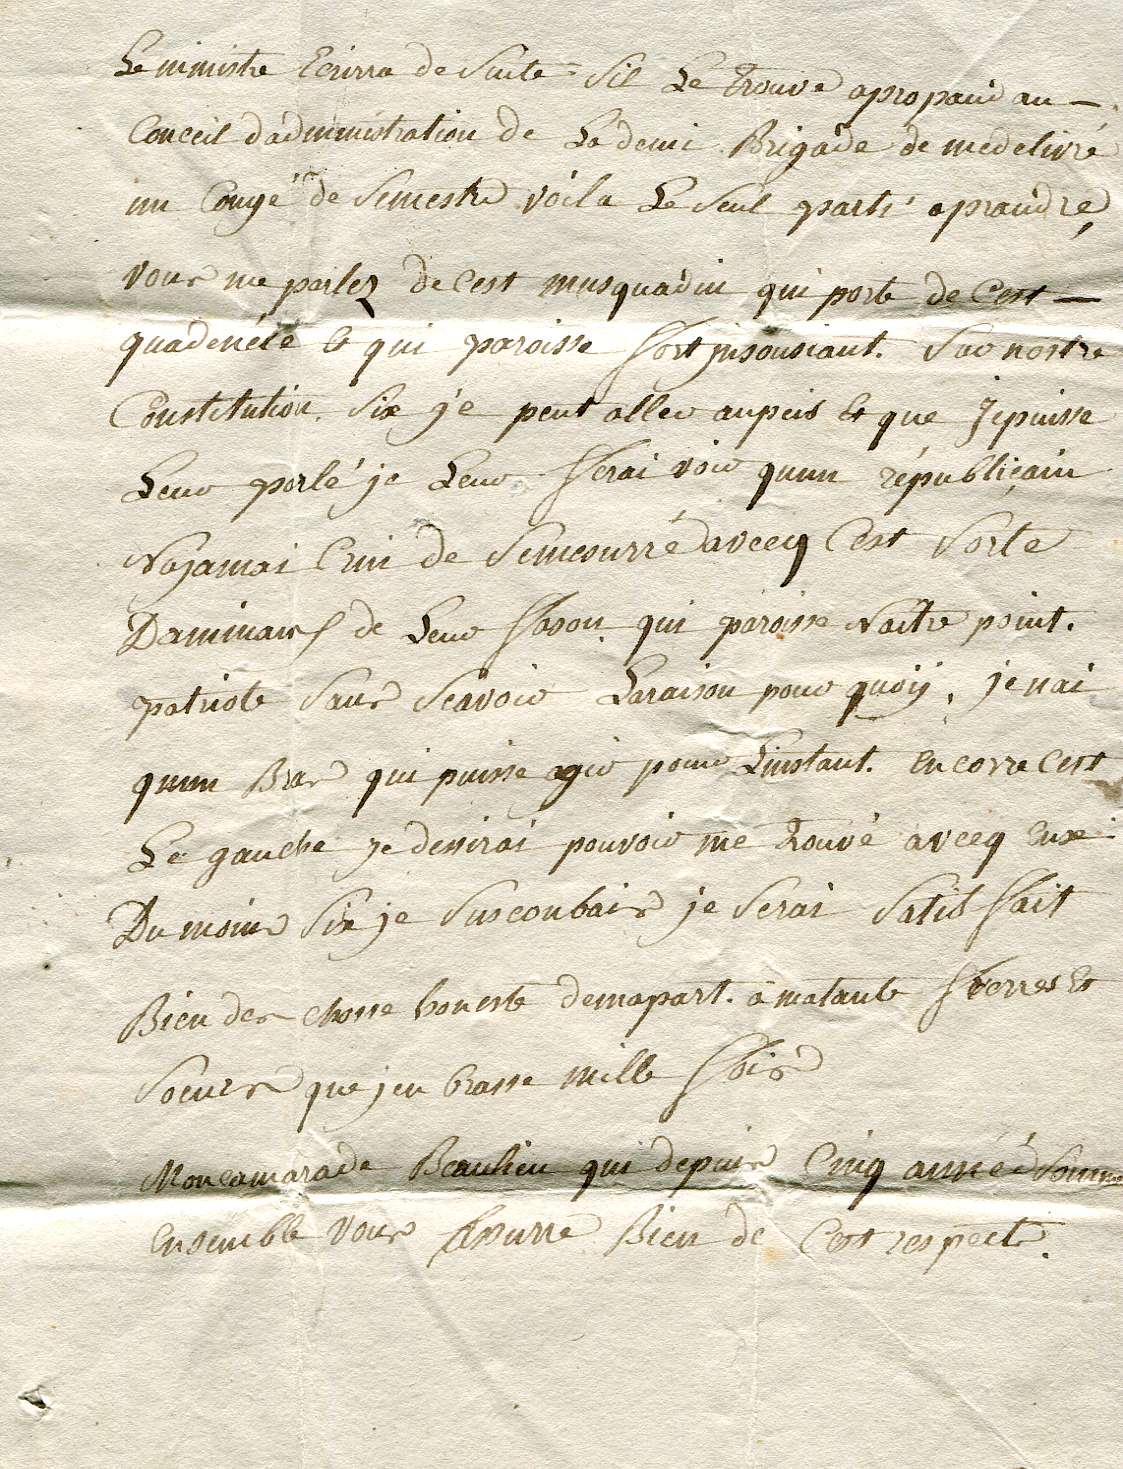 Le ministre Ecrirra de Suite = Sil Le trouve apropaud au —
Conceil dadministration de La demi Brigade de medelivré
un Congé de Semestre voila Le Seul parti aprandre,
vous me parlez de Cest musquadin qui porte de Cest —
quadenété & qui paroisse ffort jnsousiant. Sur nostre
Constitution. Six j'e peut aller aupeis Et que Jepuisse
Leur parlé je Leur fferai voir quun républiçain
Najamai Crin de Semesurré avecq Cest Sorte
Daminaux de Leur ffason qui paroisse Naitre point.
patriote Sans Scavoir Laraison pour quoÿ, je nai
quun Bras qui puisse agir pour Linstant. Encorre Cest
Le gauche je dessirai pouvoir me trouvé avecq Eux
Du moins Six je Suscombais je Serai Satis ffait
Bien des chosse honeste demapart. a matante fferres Et
Soeurs que jen brasse mille ffois
Moncamarade Beaulieu qui depuis Cinq anneé Somme
Ensemble vous assurre Bien de Cest respects.